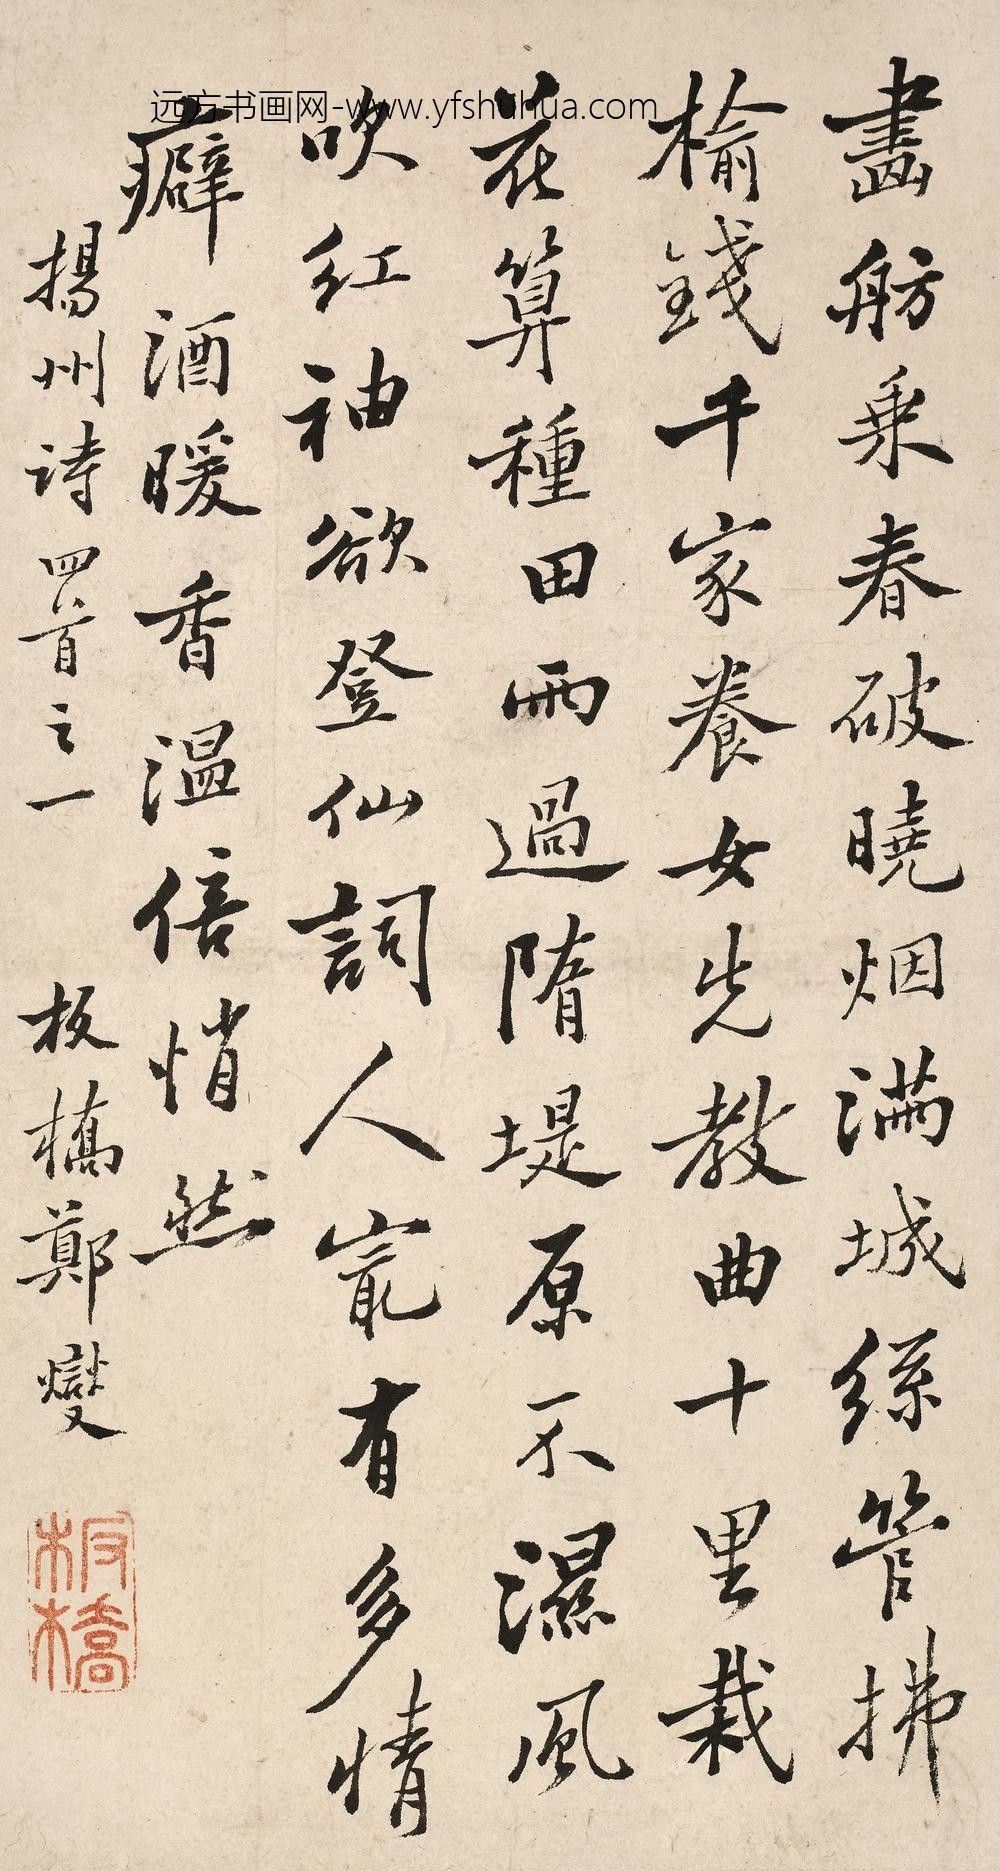 畫舫乗春破曉烟滿城絲管拂
榆錢千家養女先教曲十里栽
花算種田雨過隋堤原不濕風
吹紅袖欲登仙詞人寂有多情
癖酒暖香温倍悄然
揚州诗四首之一 板橋鄭燮
板橋
远方书画网-www.yfshuhua.com